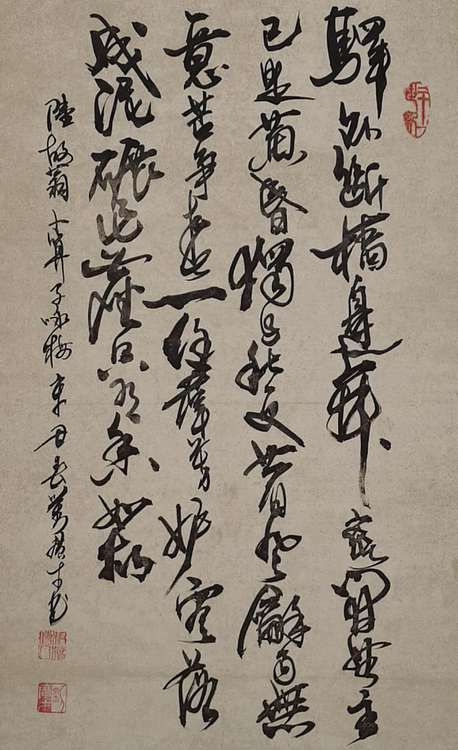 驛外斷橋邊寂寞開無主
已是黃昏獨自愁更著風龢雨無
意苦爭春一任群芳妒零落
成泥碾作塵只有香如故
陸放翁卜算子詠梅辛丑